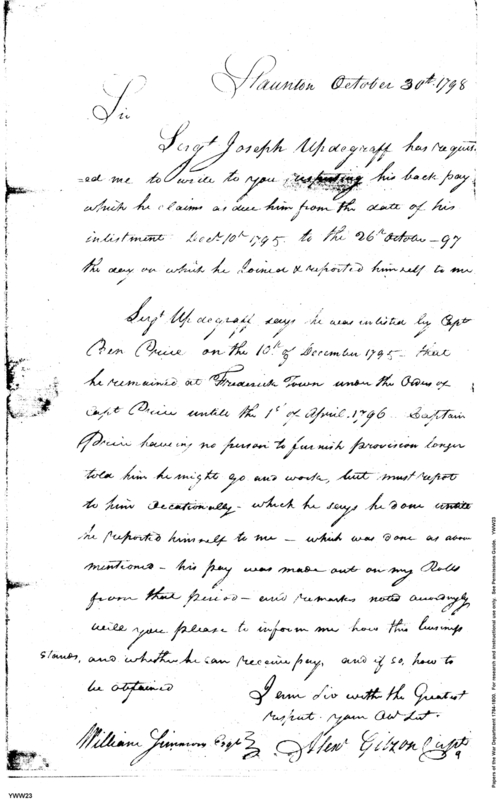 Staunton October 30th 1798
Sir
Sergt Joseph Updegraff has request
=ed me to write to you respecting his back pay
which he claims as due him from the date of his
inlestment Decr 10th 1795 to the 26th October - 97
the day on which he Joined & reported himself to me
Sergt Updegraff says he was inlisted by Capt
Ben Price on the 10th of December 1795 - that
he remained at Frederick Town under the Orders of
Capt Price untile the 1st of April. 1796 Captain
Price haveing no person to furnish provision longer
told him he might go and work, but must repot
to him Occationally - which he says he done untile
he reported himself to me - which was done as above
mentioned - his pay was made out on my Rolls
from that period - and remarks noted accordingly
will you please to inform me how this business
stands, and whether he can receive pay, and if so, how to
be obtained
I am Sir with the Greatest
respect your Obt Set.
William Simmons Esqr
Alexr Gibson Capt
YWW23
Papers of the War Department 1784-1800. For research and instructional use only. See Permissions Guide. YWW23